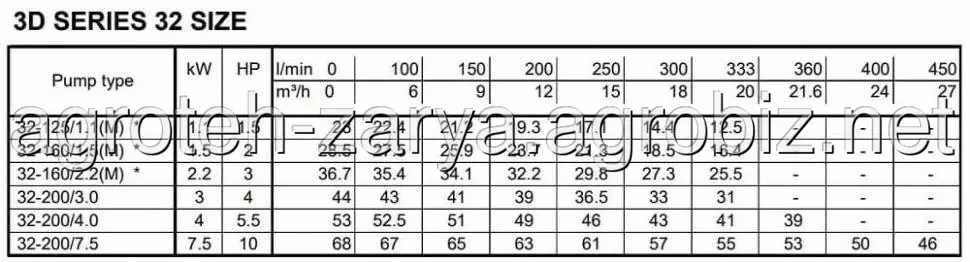 3D SERIES 32 SIZE
Pump type kW HP l/min 0 100 150 200 250 300 333 360 400 450
m³/h 0 6 9 12 15 18 20 21.6 24 27
32-125/1.1(M) * 1.1 1.5 23 22.4 21.2 19.3 17.1 14.4 12.5 - - -
32-160/1.5(M) * 1.5 2 28.5 27.5 25.9 23.7 21.3 18.5 16.4 - - -
32-160/2.2(M) * 2.2 3 36.7 35.4 34.1 32.2 29.8 27.3 25.5 - - -
32-200/3.0 3 4 44 43 41 39 36.5 33 31 - - -
32-200/4.0 4 5.5 53 52.5 51 49 46 43 41 39 - -
32-200/7.5 7.5 10 68 67 65 63 61 57 55 53 50 46
agroteh-zarya.agrobiz.net